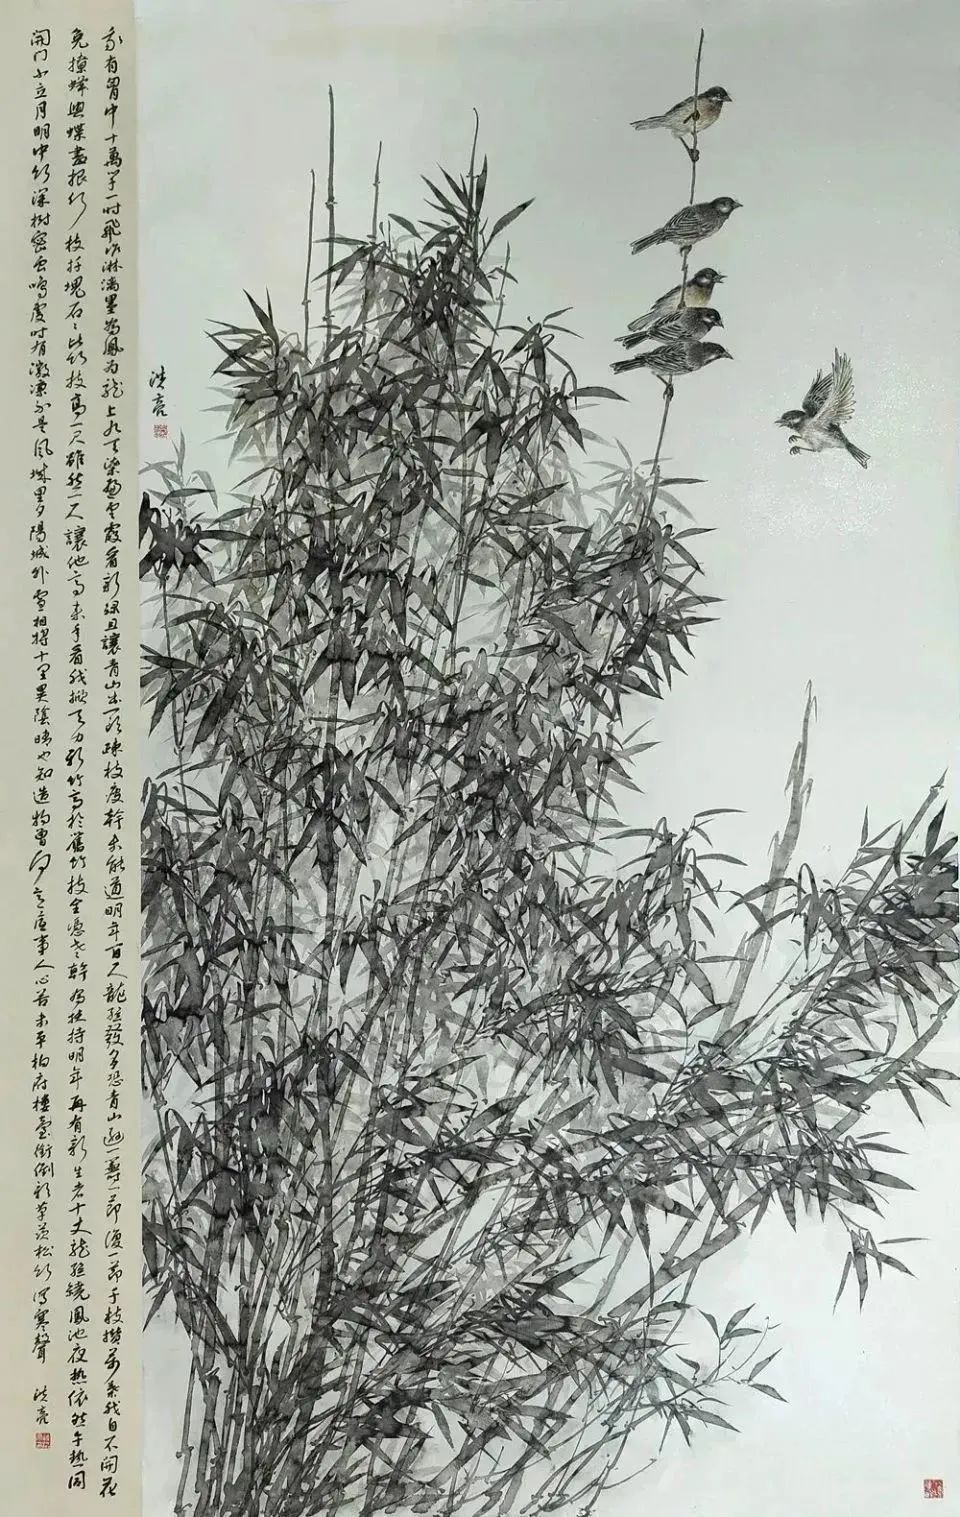 我有胸中十萬竿一时飛作淋漓墨為鳳为龍上九天染遍雲霞看新绿且讓青山出一头疎枝瘦幹未能遒明年百尺龍孫發多恐青山遜一籌一節復一節千枝攢萬葉我自不開花
免撩蜂與蝶畫根竹枝扦塊石石比竹枝高一尺雖然一尺讓他高来年看我掀天力新竹高於舊竹枝全憑老幹为扶持明年再有新生者十丈龍孫繞鳳池夜热依然午熱同
開門小立月明中竹深樹密虫鳴處时有微凉不是風城里夕陽城外雪相將十里異陰晴也知造物曾何意底事人心苦未平柏府樓臺銜倒影茅茨松竹瀉寒聲 洪亮
洪亮